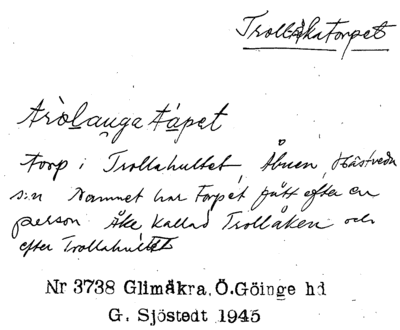 Trollåkatorpet
Aròlanga tápet
torp i Trollahultet, Åbuen, Hästveda
s:n Namnet har Torpet fått efter en
person Åke kallad Trollåken och
efter Trollahultet
Nr 3738 Glimåkra, Ö.Göinge hd
G. Sjöstedt 1945